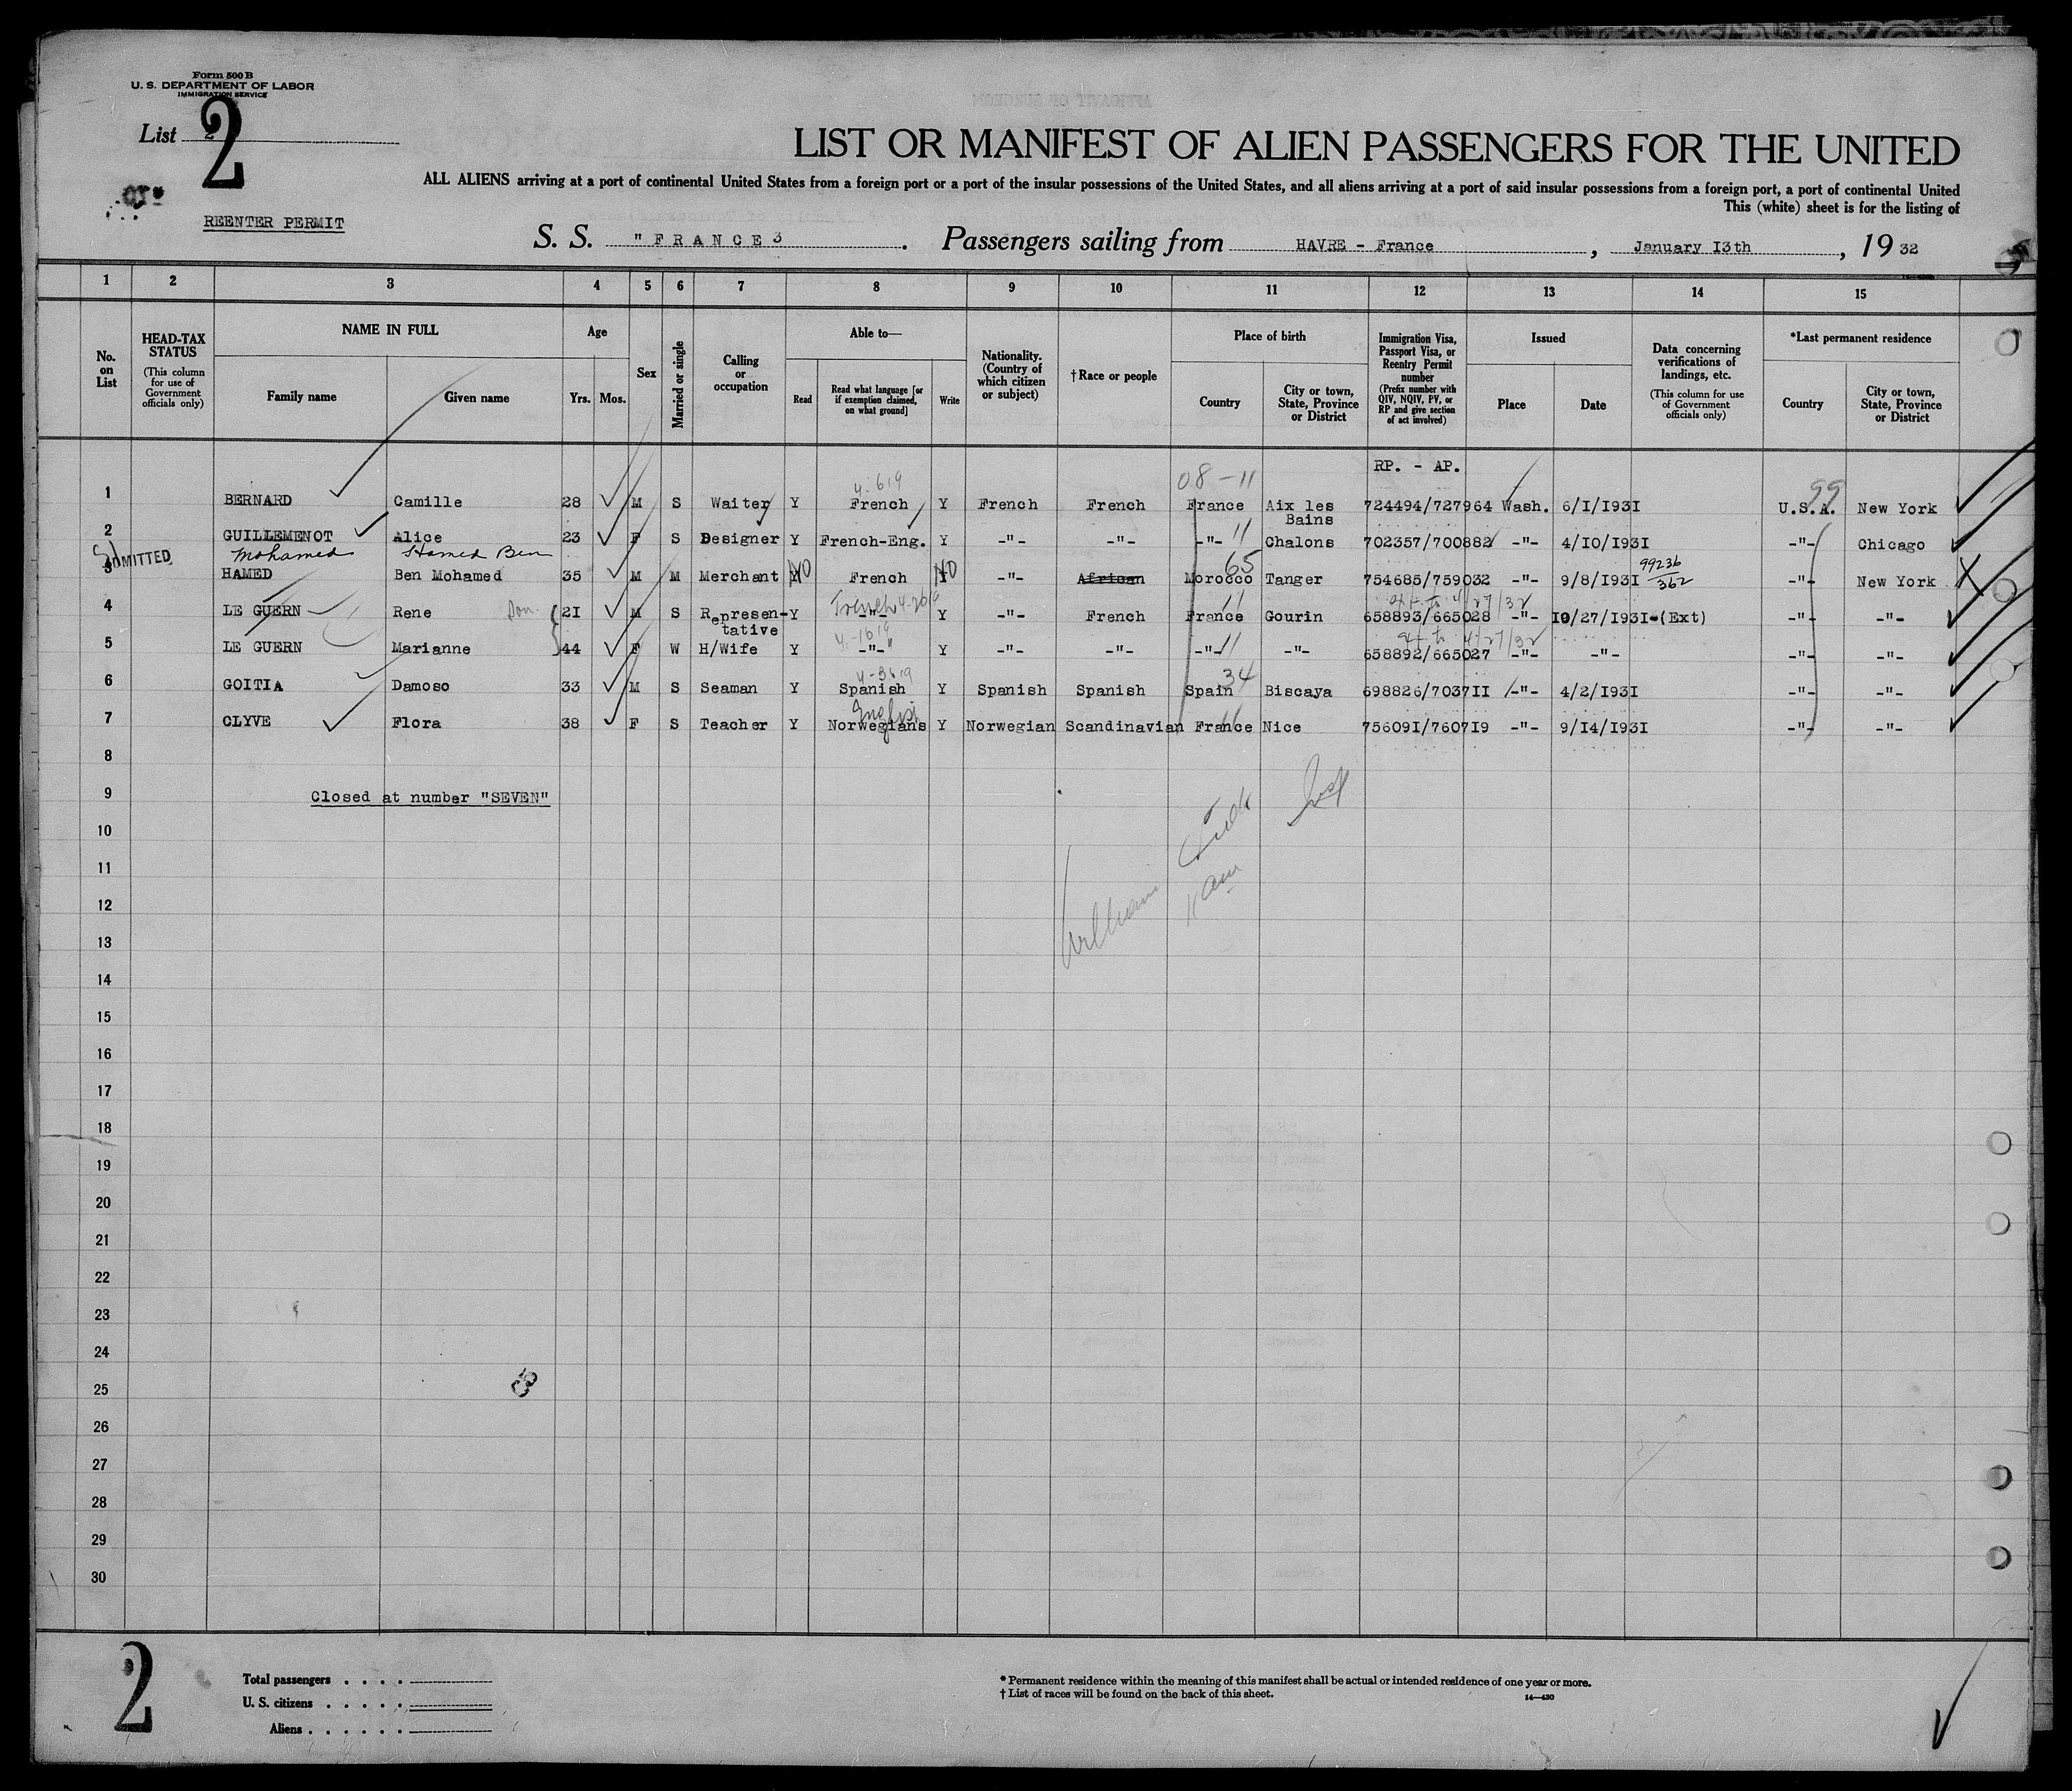 Form 500 B
U. S. DEPARTMENT OF LABOR
IMMIGRATION SERVICE
List 2
2
LIST OR MANIFEST OF ALIEN PASSENGERS FOR THE UNITED
ALL ALIENS arriving at a port of continental United States from a foreign port or a port of the insular possessions of the United States, and all aliens arriving at a port of said insular possessions from a foreign port, a port of continental United
This (white) sheet is for the listing of
REENTER PERMIT
S. S. "FRANCE3 . Passengers sailing from HAVRE - France , January I3th , 19 32
1 2 3 4 5 6 7 8 9 10 11 12 13 14 15
No. on List
HEAD-TAX STATUS (This column for use of Government officials only)
NAME IN FULL
Family name Given name
Age
Yrs. Mos.
Sex
Married or single
Calling or occupation
Able to—
Read Read what language [or if exemption claimed, on what ground] Write
Nationality. (Country of which citizen or subject)
† Race or people
Place of birth
Country City or town, State, Province or District
Immigration Visa, Passport Visa, or Reentry Permit number (Prefix number with QIV, NQIV, PV, or RP and give section of act involved)
Issued
Place Date
Data concerning verifications of landings, etc. (This column for use of Government officials only)
*Last permanent residence
Country City or town, State, Province or District
RP. - AP.
4-619 08-11 99
1 BERNARD Camille 28 M S Waiter Y French Y French French France Aix les Bains 724494/727964 Wash. 6/I/I93I U.S.A. New York
2 GUILLEMENOT Alice 23 F S Designer Y French-Eng. Y -"- -"- -"- 11 Chalons 702357/700882 -"- 4/IO/I93I -"- Chicago
ADMITTED Mohamed Hamed Ben
3 HAMED Ben Mohamed 35 M M Merchant Y NO French Y NO -"- African Morocco 65 Tanger 754685/759032 -"- 9/8/I93I 99236/362 -"- New York
4 LE GUERN Rene 21 M S Representative Y French -"- Y -"- French France 11 Gourin 658893/665028 -"- IO/27/I93I-(Ext) -"- -"-
5 LE GUERN Marianne 44 F W H/Wife Y -"- Y -"- -"- -"- 11 -"- 658892/665027 -"- -"- -"- -"-
6 GOITIA Damoso 33 M S Seaman Y Spanish Y Spanish Spanish Spain 34 Biscaya 698826/7037II -"- 4/2/I93I -"- -"-
7 CLYVE Flora 38 F S Teacher Y English Norwegians Y Norwegian Scandinavian France 11 Nice 75609I/7607I9 -"- 9/I4/I93I -"- -"-
8
9 Closed at number "SEVEN"
10
11 11 am
12 William
13
14
15
16
17
18
19
20
21
22
23
24
25
26
27
28
29
30
2
Total passengers . . . .
U. S. citizens . . . . .
Aliens . . . . . .
* Permanent residence within the meaning of this manifest shall be actual or intended residence of one year or more.
† List of races will be found on the back of this sheet.
14—430